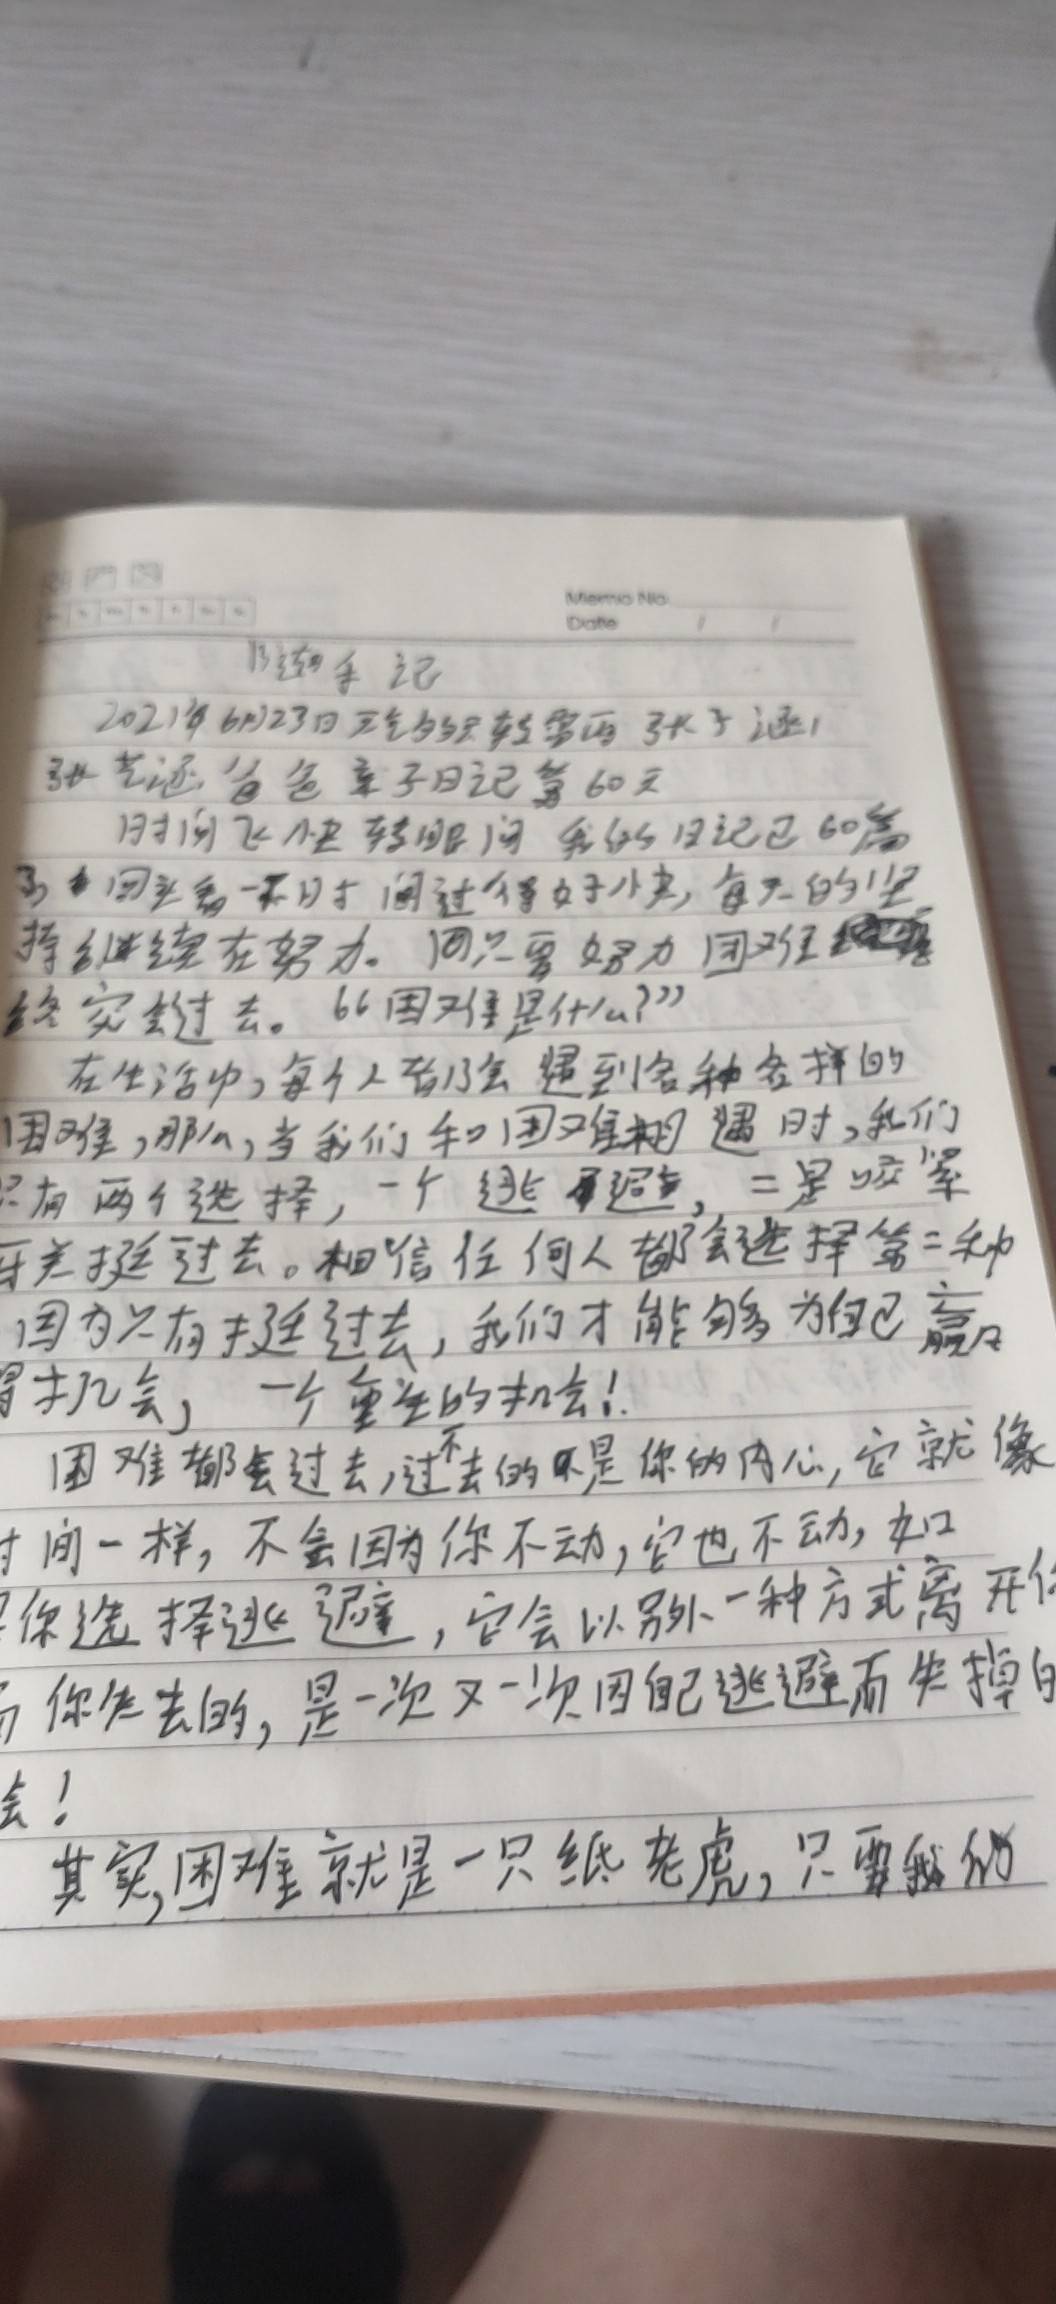 Memo No.
Date / /
随手记
2021年6月23日 天气多云转雷雨 张子涵
张艺涵 爸爸 亲子日记第60天
时间飞快 转眼间 我的日记已60篇
了 回头看一下时间过得好快，每天的坚
持继续在努力。同只要努力 困难
终究会过去。“困难是什么？”
在生活中，每个人都会遇到各种各样的
困难，那么，当我们和困难相遇时，我们
只有两个选择，一个逃避，二是咬紧
牙关挺过去。相信任何人都会选择第二种
因为只有挺过去，我们才能够为自己赢
得机会，一个重生的机会！
困难都会过去，过不去的是你的内心，它就像
时间一样，不会因为你不动，它也不动，如
果你选择逃避，它会以另外一种方式离开你
而你失去的，是一次又一次因自己逃避而失掉的
会！
其实，困难就是一只纸老虎，只要我们